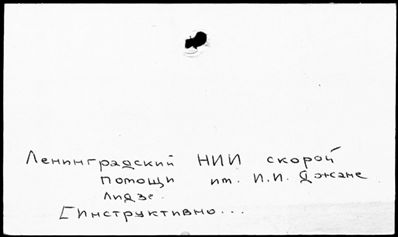 Ленинградский НИИ скорой
помощи им. И.И. Джане
лидзе.
[Инструктивно...